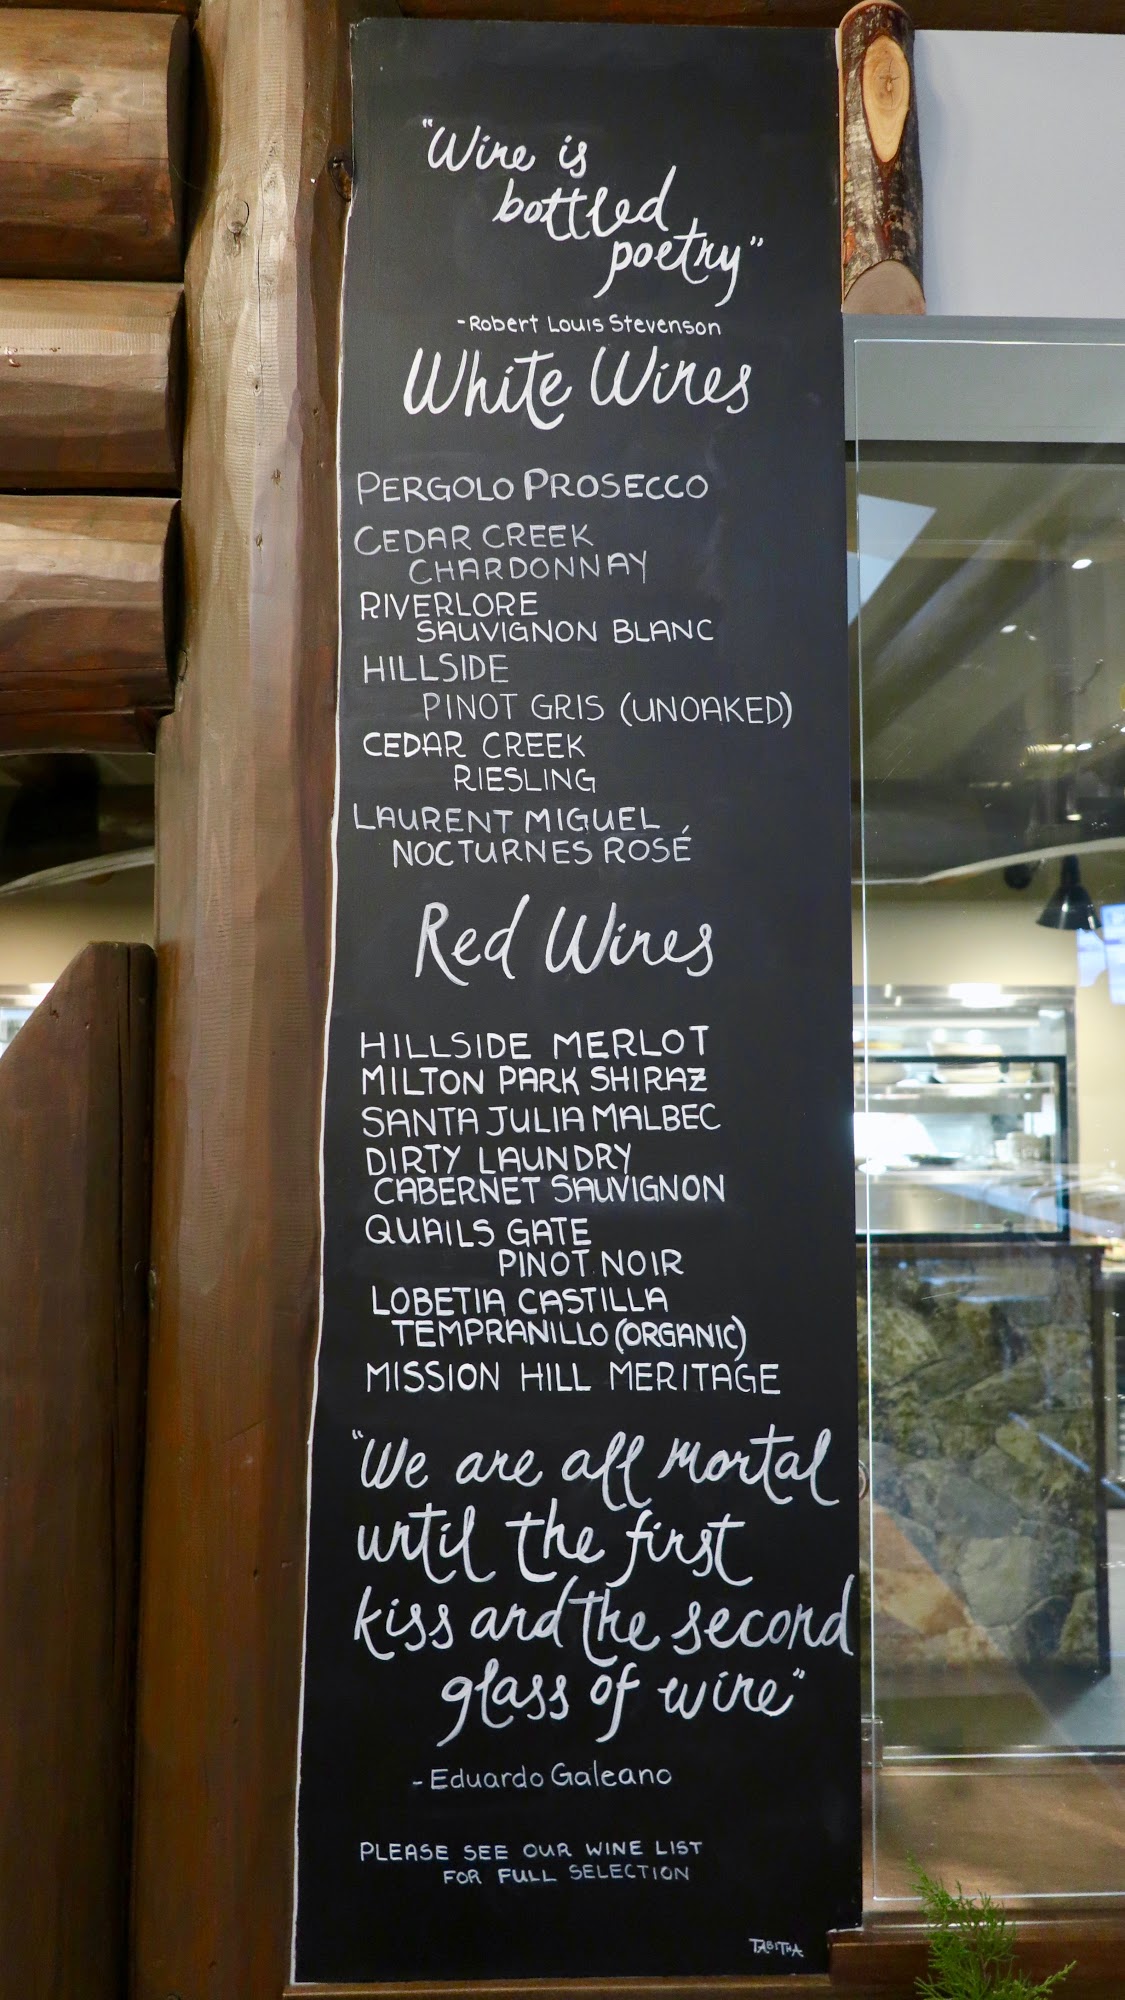 "Wine is
bottled
poetry"
-Robert Louis Stevenson
White Wines
PERGOLO PROSECCO
CEDAR CREEK
CHARDONNAY
RIVERLORE
SAUVIGNON BLANC
HILLSIDE
PINOT GRIS (UNOAKED)
CEDAR CREEK
RIESLING
LAURENT MIGUEL
NOCTURNES ROSÉ
Red Wines
HILLSIDE MERLOT
MILTON PARK SHIRAZ
SANTA JULIA MALBEC
DIRTY LAUNDRY
CABERNET SAUVIGNON
QUAILS GATE
PINOT NOIR
LOBETIA CASTILLA
TEMPRANILLO (ORGANIC)
MISSION HILL MERITAGE
"We are all mortal
until the first
kiss and the second
glass of wine"
- Eduardo Galeano
PLEASE SEE OUR WINE LIST
FOR FULL SELECTION
TABITHA